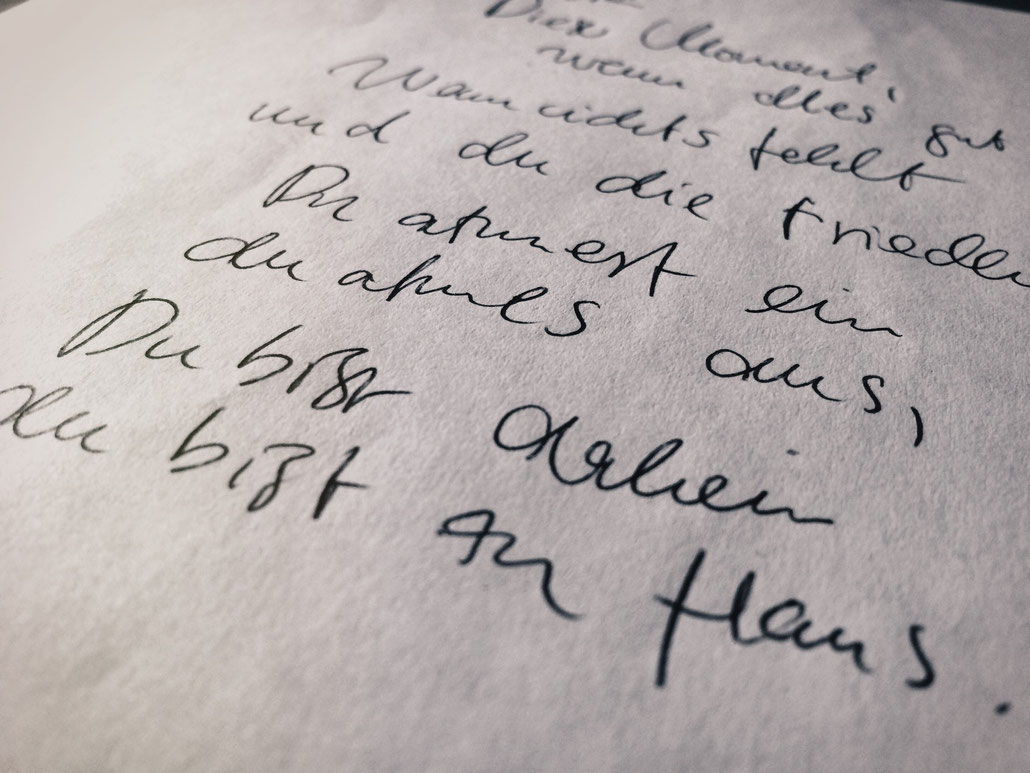 Dieser Moment,
wenn alles gut
Wenn nichts fehlt
und du die Frieden
Du atmest ein
du atmes aus,
Du bist daheim
du bist zu Haus.